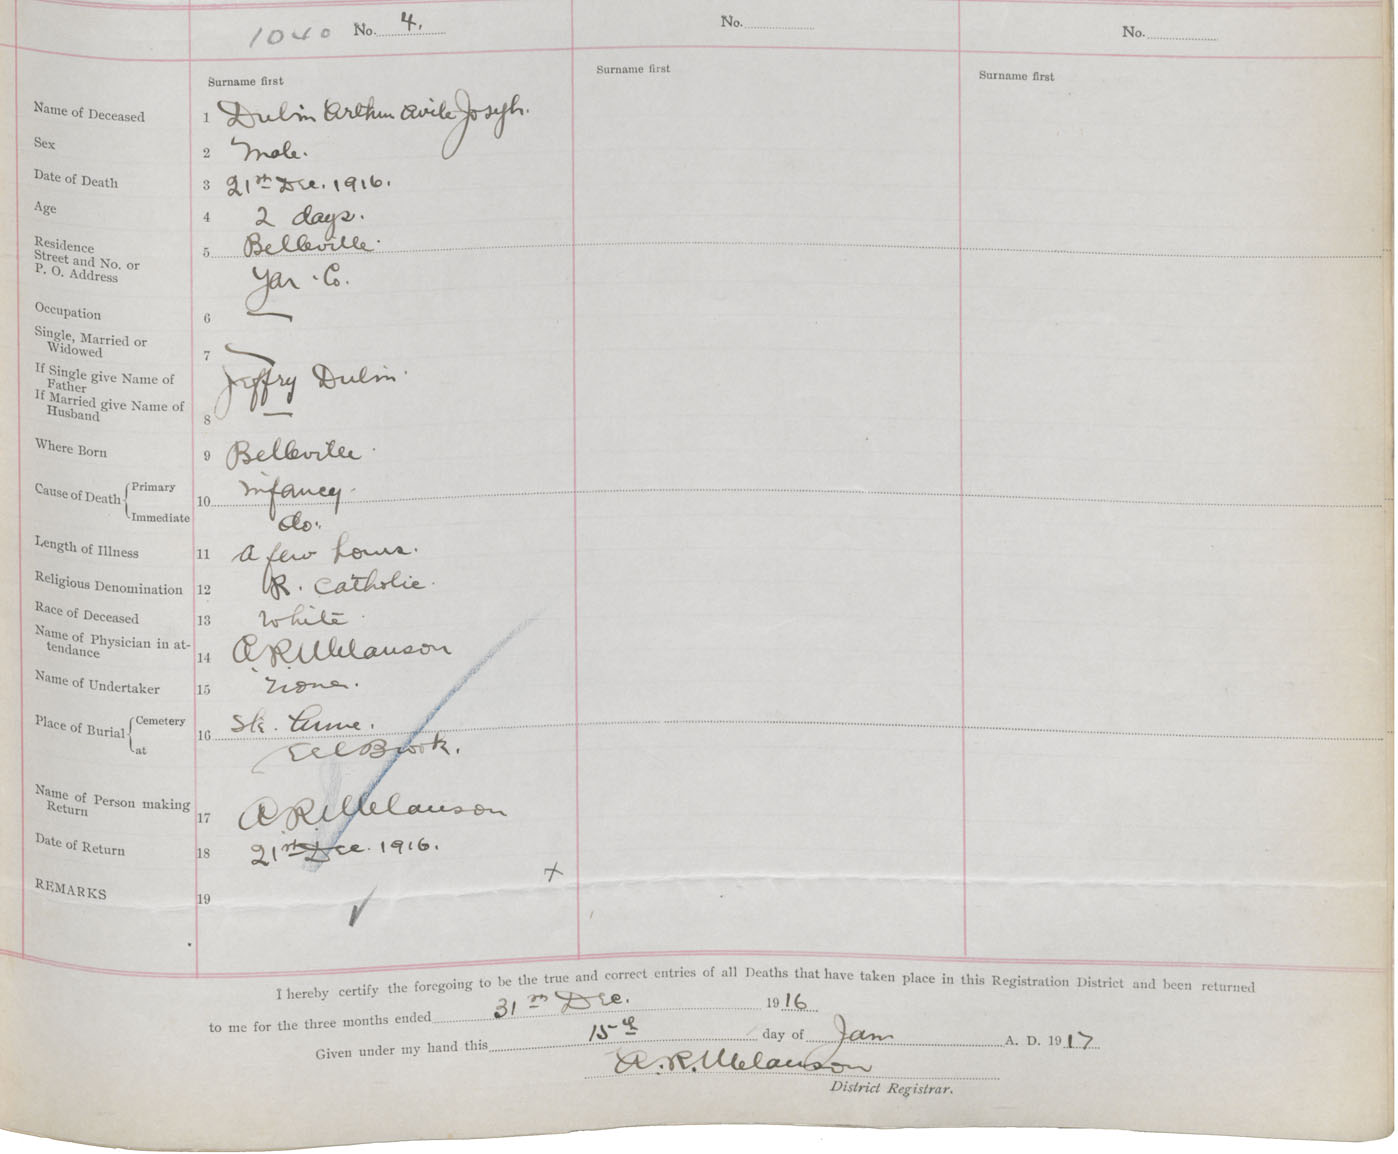 1040 No. 4.
No.
No.
Surname first
Surname first
Surname first
Name of Deceased 1 Dulin Arthur Avite Joseph.
Sex 2 Male.
Date of Death 3 21st Dec. 1916.
Age 4 2 days.
Residence
Street and No. or
P. O. Address
5 Belleville.
Yar. Co.
Occupation 6 —
Single, Married or
Widowed
7 —
If Single give Name of
Father
Jeffry Dulin.
If Married give Name of
Husband
8 —
Where Born 9 Belleville.
Cause of Death { Primary 10 infancy.
Immediate do.
Length of Illness 11 a few hours.
Religious Denomination 12 R. Catholic.
Race of Deceased 13 White.
Name of Physician in at-
tendance
14 A. R. Melanson
Name of Undertaker 15 none.
Place of Burial { Cemetery 16 Ste. Anne.
at Eel Brook.
Name of Person making
Return
17 A. R. Melanson
Date of Return 18 21st Dec. 1916.
REMARKS 19
I hereby certify the foregoing to be the true and correct entries of all Deaths that have taken place in this Registration District and been returned
to me for the three months ended 31st Dec. 1916
Given under my hand this 15th day of Jan A. D. 1917
A. R. Melanson
District Registrar.